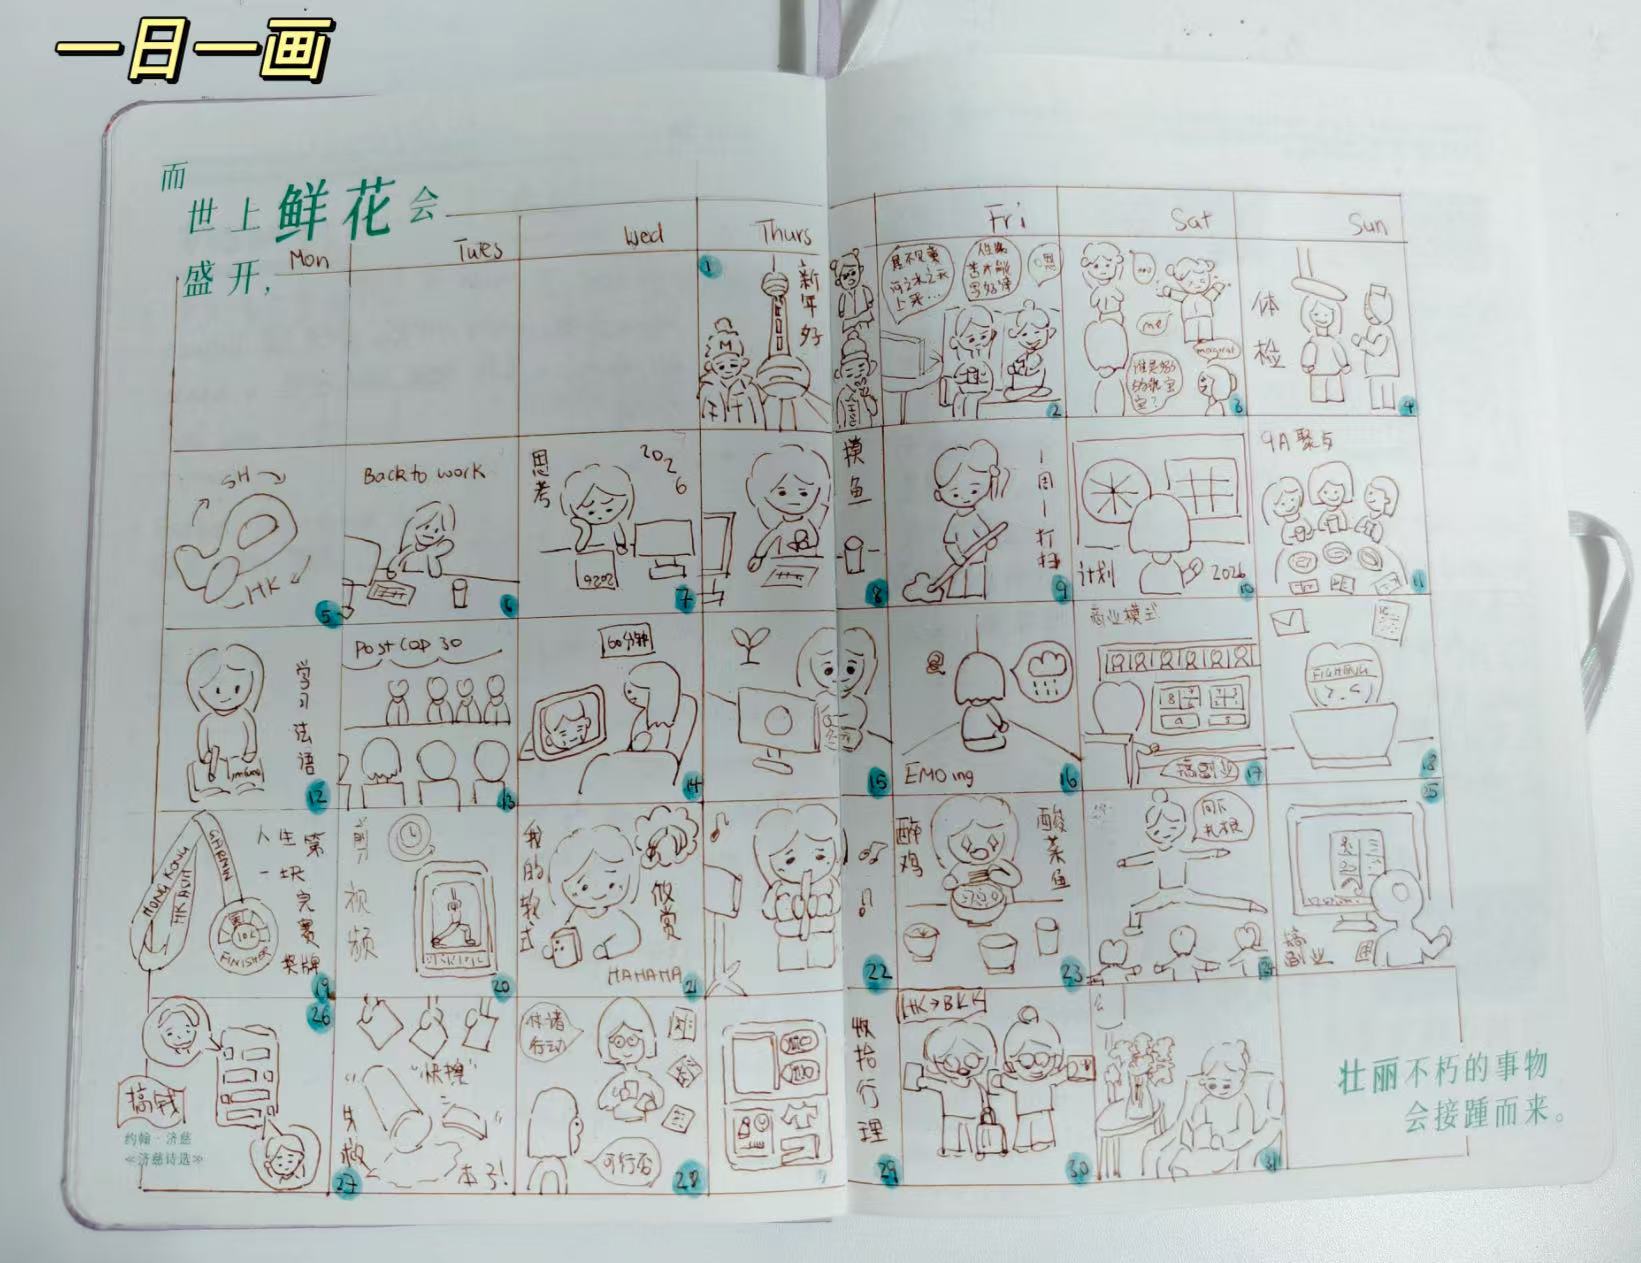 一日一画
而
世上鲜花会
盛开,
Mon
Tues
Wed
Thurs
Fri
Sat
Sun
1
新年好
M
2
me
谁是妈
3
体检
4
SH
HK
5
Back to work
6
思考
2026
7
摸鱼
8
一周一打扫
9
计划
2026
10
9A聚与
11
学习法语
12
Post COP 30
13
60分钟
14
15
EMO ing
16
商业模式
搞副业
17
FIGHTING
18
HONG KONG
HK
FINISHER
10K
人生第
一块
完赛
奖牌
19
剪视频
20
我的教式
欣赏
HAHAHA
21
22
醉鸡
酸菜鱼
23
向下
扎根
24
25
搞副业
26
搞钱
约翰·济慈
≪济慈诗选≫
"快撑"
失败
本子!
27
付诸
行动
可行否
28
收拾行理
29
HK→BKK
30
31
壮丽不朽的事物
会接踵而来。